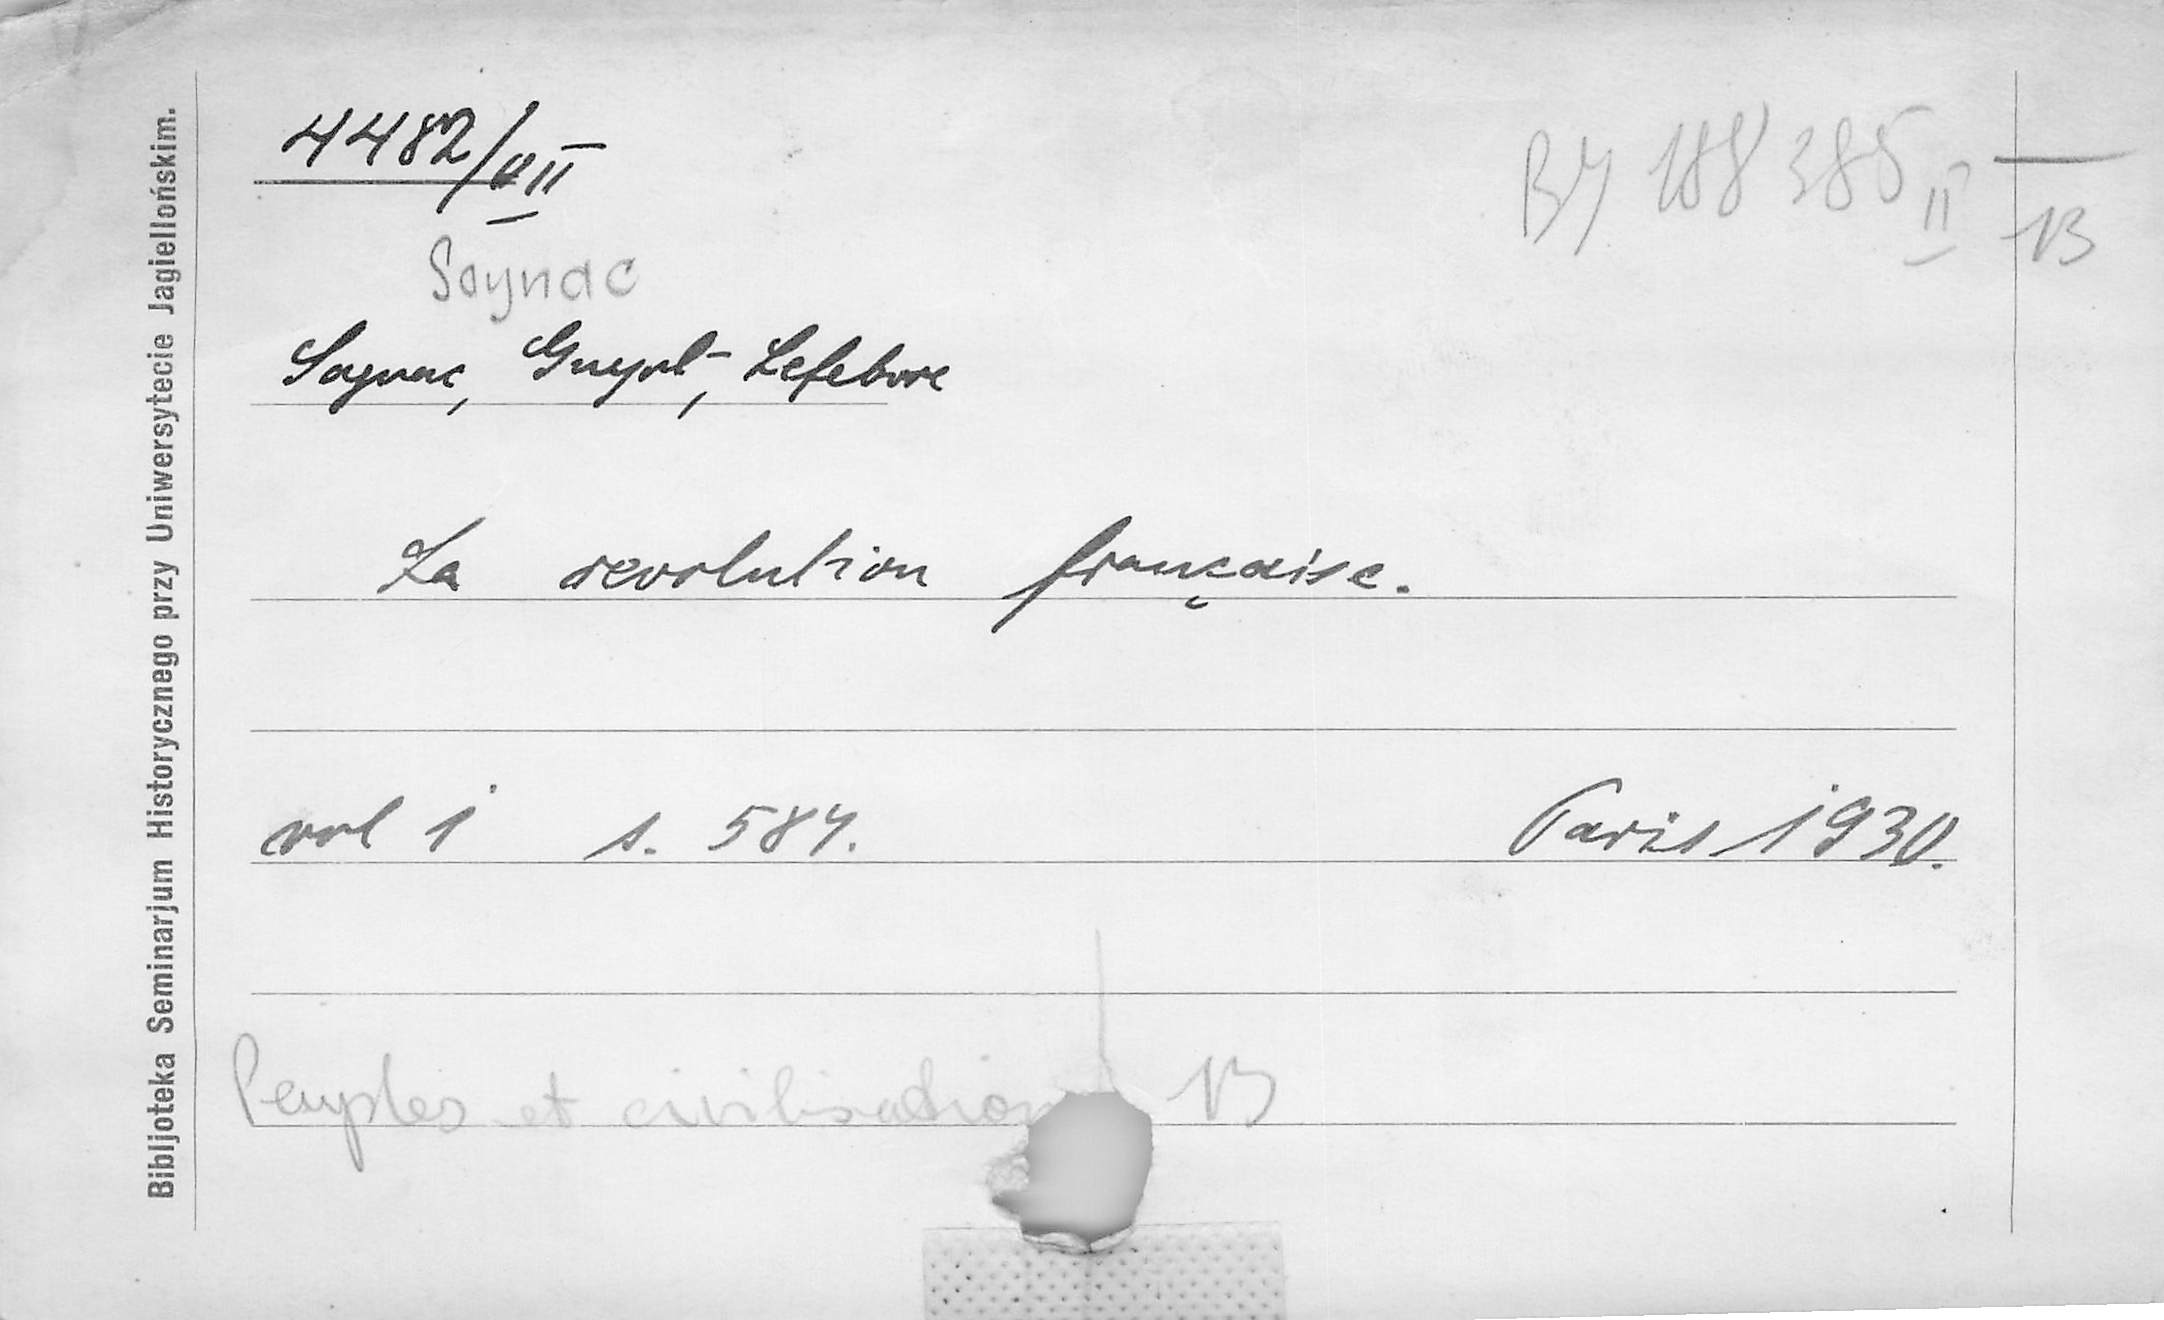 4482/VII
BJ 188 385 II
13
Sagnac
Sagnac, Guyot, Lefebvre
La revolution française.
vol 1 s. 584. Paris 1930.
Peuples et civilisation 13
Bibljoteka Seminarjum Historycznego przy Uniwersytecie Jagiellońskim.